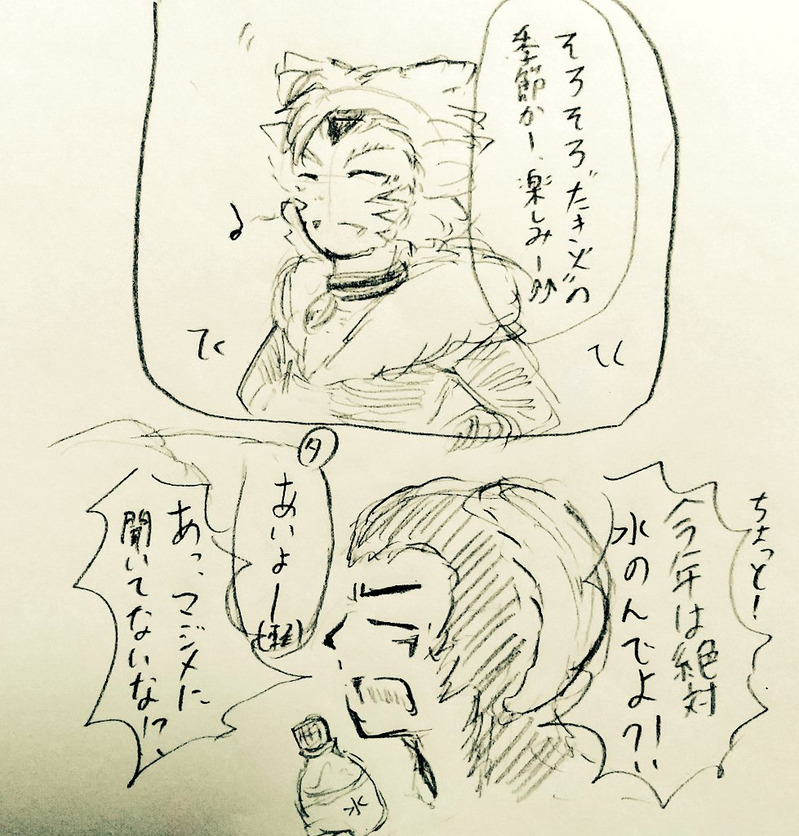 そろそろ“たき火”の
季節かー、楽しみー♪♪
♪
てく
てく
ちょっと!
今年は絶対
水のんでよ?!!
タ
あいよー
(軽)
あっ、マジメに
聞いてないな!?、
水